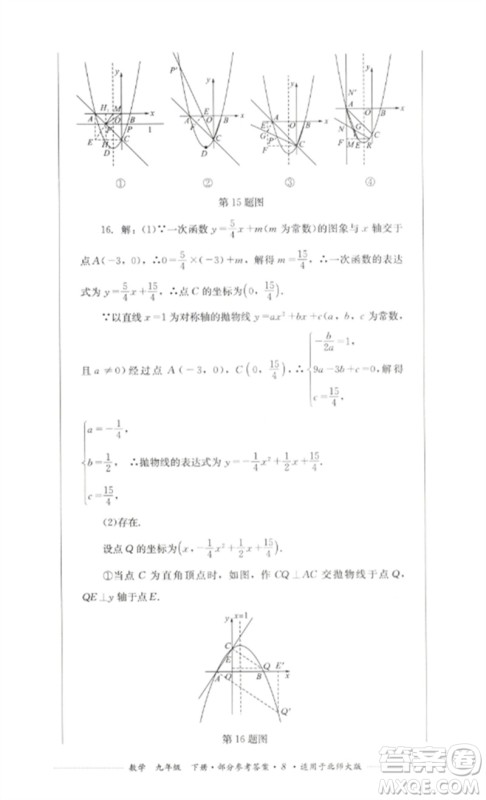 ① ② ③ ④
第15题图
16. 解：(1)∵一次函数 y=5/4x+m(m 为常数)的图象与 x 轴交于
点A(-3，0)，∴0=5/4×(-3)+m，解得 m=15/4，∴一次函数的表达
式为 y=5/4x+15/4，∴点 C 的坐标为(0，15/4).
∵以直线 x=1 为对称轴的抛物线 y=ax²+bx+c(a，b，c 为常数，
且 a≠0)经过点 A(-3，0)，C(0，15/4)，∴{-b/2a=1，9a-3b+c=0，c=15/4，解得
{a=-1/4，b=1/2，c=15/4，∴抛物线的表达式为 y=-1/4x²+1/2x+15/4.
(2)存在.
设点 Q 的坐标为(x，-1/4x²+1/2x+15/4).
①当点 C 为直角顶点时，如图，作 CQ⊥AC 交抛物线于点 Q，
QE⊥y 轴于点 E.
y x=1
C
E
A O B Q E' x
Q'
第16题图
数学 九年级 下册·部分参考答案·8·适用于北师大版